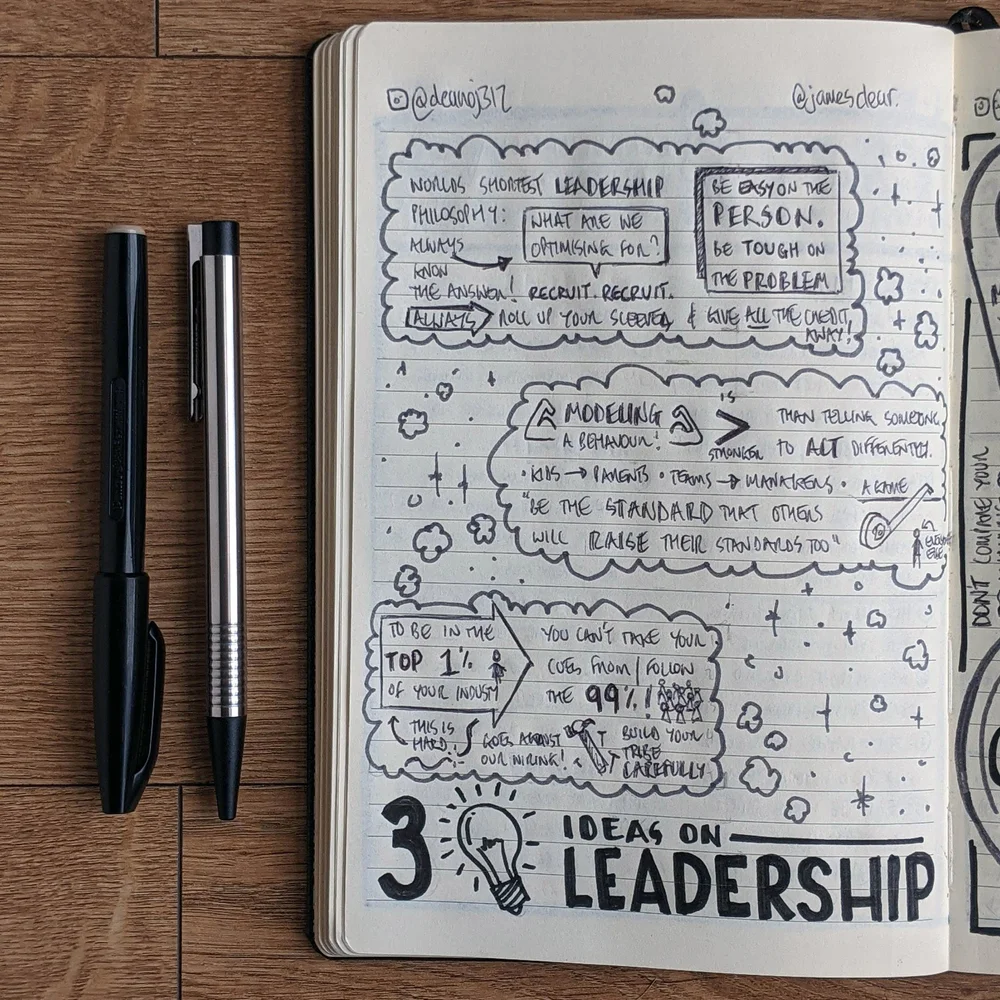 @deanoj317
@jamesclear.
WORLDS SHORTEST LEADERSHIP
PHILOSOPHY:
ALWAYS
KNOW
THE ANSWER!
WHAT ARE WE
OPTIMISING FOR?
RECRUIT. RECRUIT.
BE EASY ON THE
PERSON.
BE TOUGH ON
THE PROBLEM
ALWAYS ROLL UP YOUR SLEEVES & GIVE ALL THE CREDIT
AWAY!
MODELING
A BEHAVIOUR!
IS
>
STRONGER
THAN TELLING SOMEONE
TO ACT DIFFERENTLY.
• KIDS → PARENTS • TEAMS → MANAGERS •
"BE THE STANDARD THAT OTHERS
WILL RAISE THEIR STANDARDS TOO"
A GAME
EVERYONE
ELSE
TO BE IN THE
TOP 1%
OF YOUR INDUSTY
YOU CAN'T TAKE YOUR
CUES FROM / FOLLOW
THE 99%!
THIS IS
HARD!
GOES AGAINST
OUR WIRING!
BUILD YOUR
TRIBE
CAREFULLY
3
IDEAS ON
LEADERSHIP
DON'T COMPARE YOUR